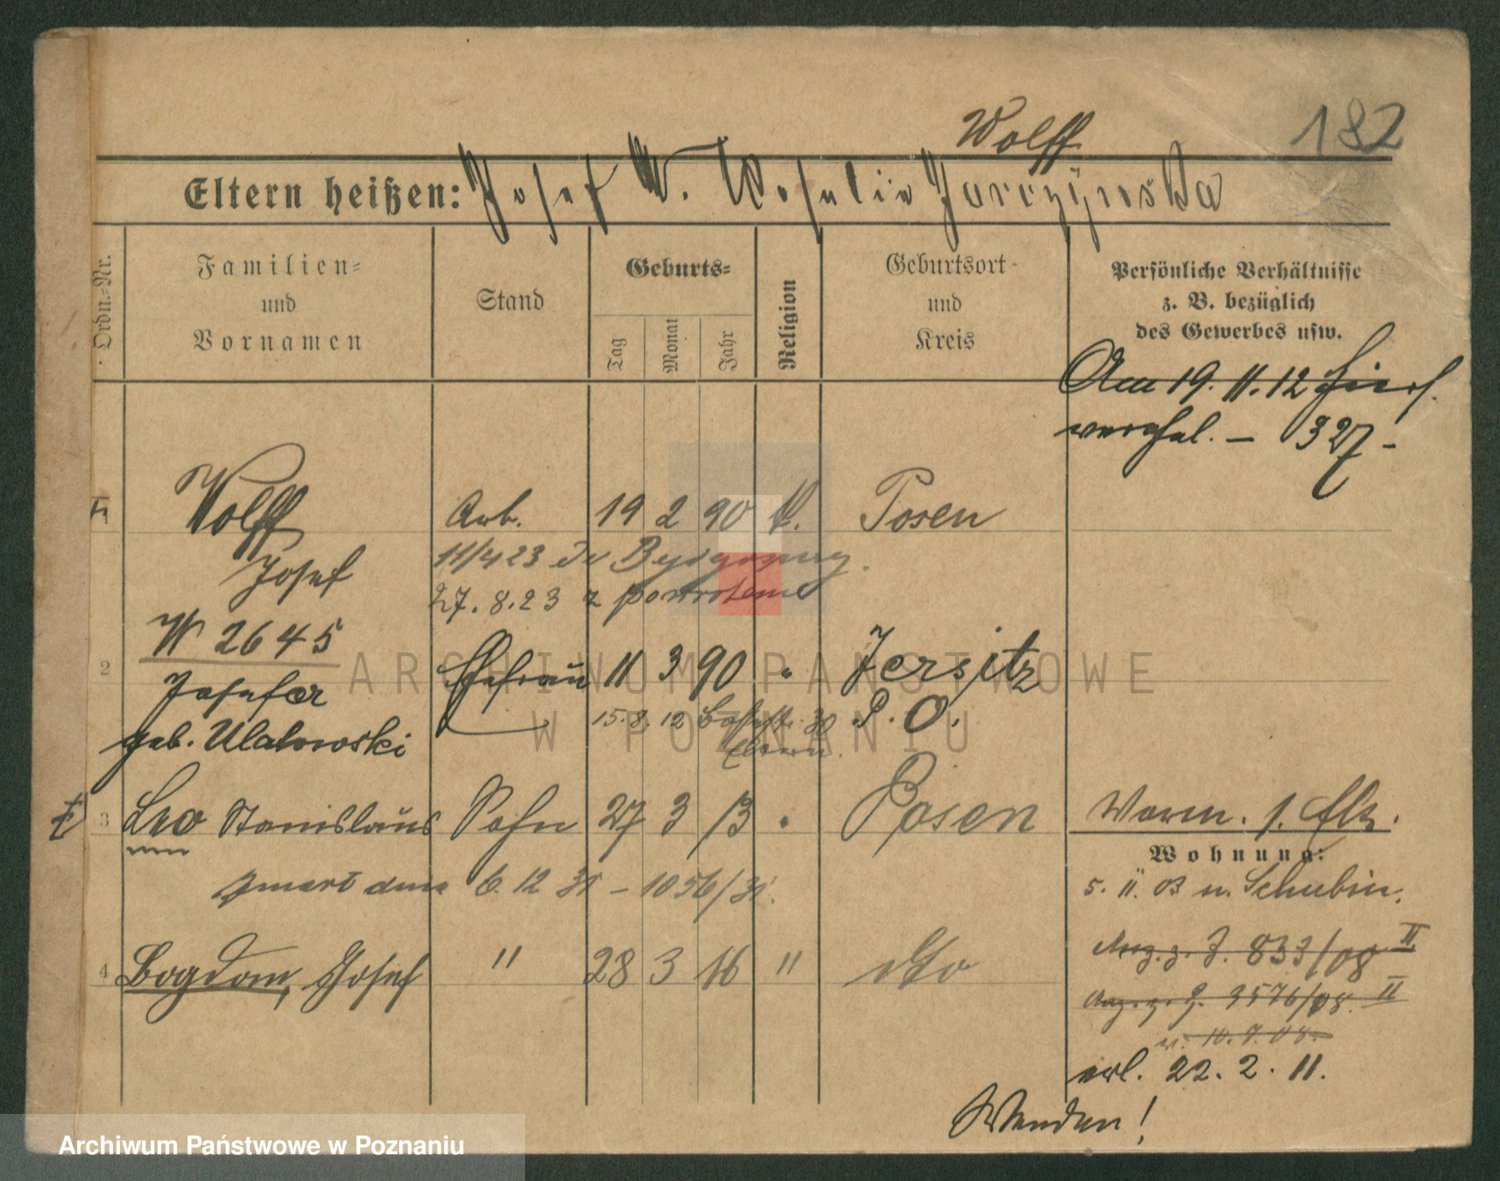 Wolff
182
Eltern heißen: Josef W. Rosalie Jarczynska
Ordn.-Nr.
Familien- und Vornamen
Stand
Geburts-
Tag
Monat
Jahr
Religion
Geburtsort und Kreis
Persönliche Verhältnisse
z. B. bezüglich
des Gewerbes usw.
Am 19. 11. 12 hiers.
327 -
1 Wolff Arb. 19 2 90 k. Posen
Josef
11/4 23 do Bydgoszczy.
27. 8. 23 z powrotem
W 2645
2 Josefa Ehefrau 11 3 90 " Jersitz
geb. Ulatowski
15. 8. 12 30 P. O.
Eltern.
3 Leo Stanislaus Sohn 27 3 13 " Posen
zmarł dnia 6. 12 31 - 1056/31.
4 Bogdan, Josef " 28 3 16 " dto
Worm. 1. Flk.
Wohnung:
5. 11. 03 n. Schubin.
Anz. z. J. 833/08 II
Anz. z. J. 3576/08. II
v. 10. 7. 08.
erl. 22. 2. 11.
Wenden!
ARCHIWUM PAŃSTWOWE
W POZNANIU
Archiwum Państwowe w Poznaniu